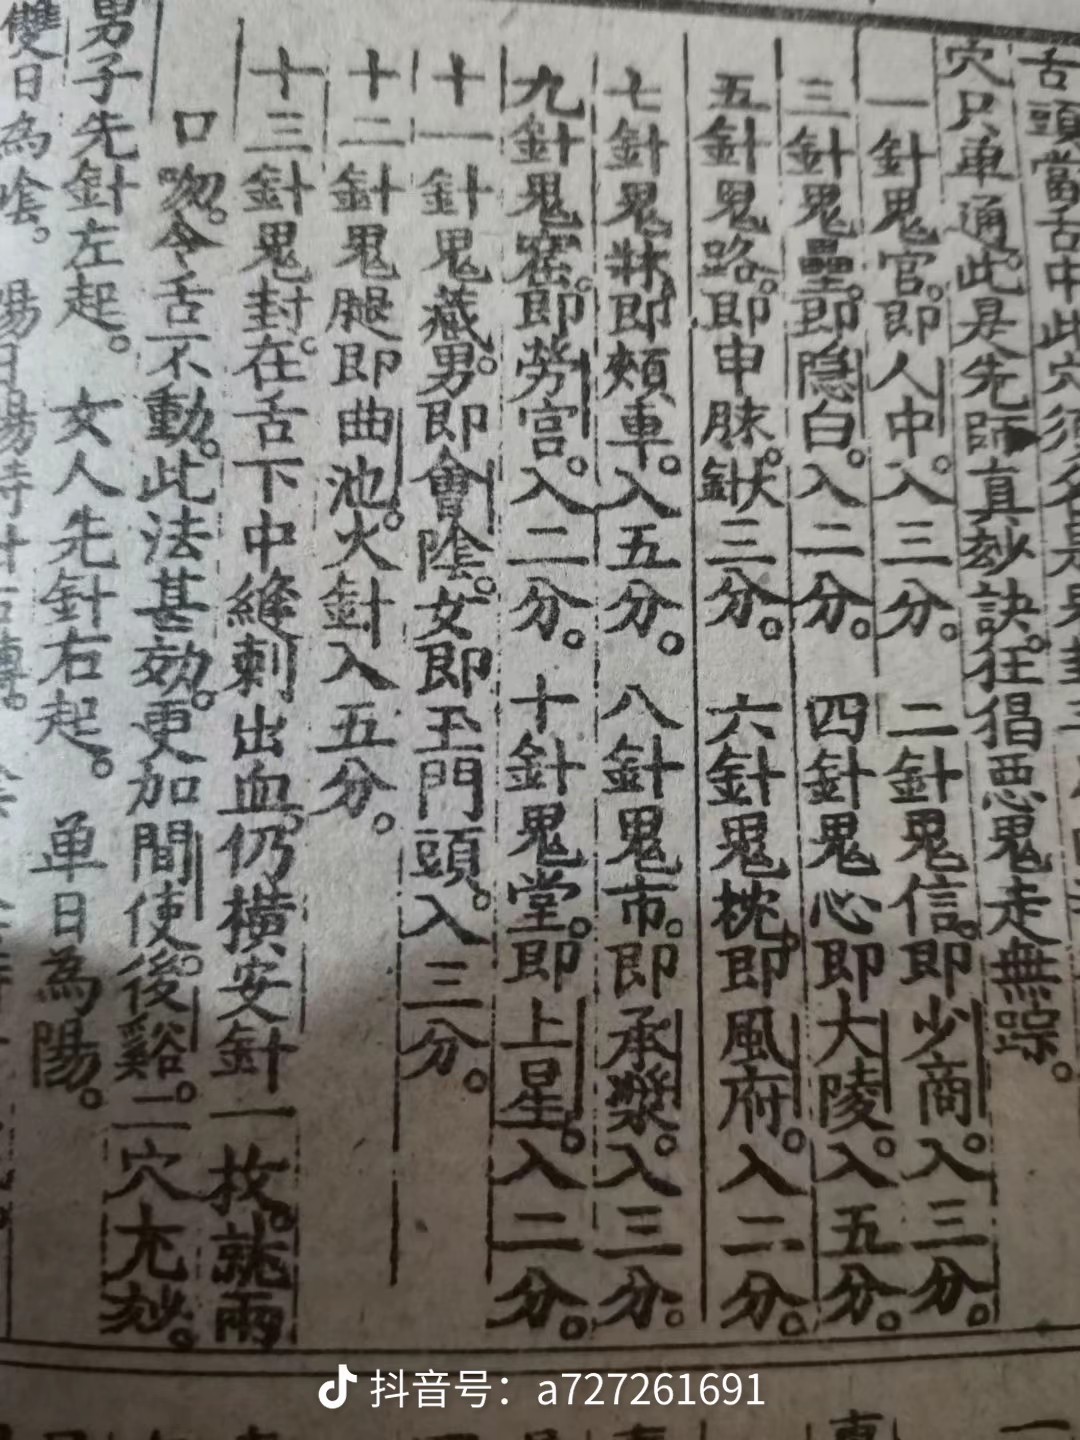 舌頭當舌中此穴須名是鬼封
穴只單通此是先師真妙訣。狂猖惡鬼走無踪。
一針鬼官。即人中。入三分。　二針鬼信。即少商。入三分。
三針鬼壘。即隐白。入二分。　四針鬼心即大陵。入五分。
五針鬼路。即申脉。針三分。　六針鬼枕。即風府。入二分。
七針鬼牀。即頰車。入五分。　八針鬼市。即承漿。入三分。
九針鬼窟。即劳宫。入二分。　十針鬼堂。即上星。入二分。
十一針鬼藏。男即會陰。女即玉門頭。入三分。
十二針鬼腿即曲池。火針入五分。
十三針鬼封。在舌下中縫刺出血。仍横安針一枚。就兩
口吻。令舌不動。此法甚効。更加間使。後谿。二穴尤妙。
男子先針左起。　女人先針右起。　单日為陽。
雙日為陰。　陽日陽時針右轉。
抖音号：a727261691